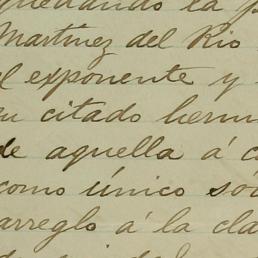 quedando la
Martinez del Rio
el exponente y
su citado herm
de aquella á c
como único só
arreglo á la cla